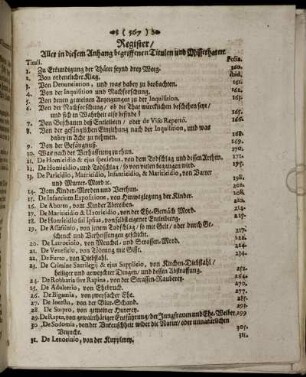 ( 567 )
Register /
Aller in diesem Anhang begriffenen Titulen und Missethaten.
Titul. Folio.
1. Zu Erkundigung der Thäter seynd drey Weeg.
2. Von ordentlicher Klag. ibid.
3. Von Denunciation, und was dabey zu beobachten.
4. Von der Inquisition und Nachforschung.
5. Von denen gemeinen Anzeigungen zu der Inquisition.
6. Von der Nachforschung / ob die That würcklichen beschehen seye /
und sich in Wahrheit also befinde?
7. Von Beschauen deß Entleibten / oder de Visu Reperto.
8. Von der gefänglichen Einziehung nach der Inquisition, und was
dabey in Acht zu nehmen.
9. Von der Gefängnuß.
10. Was nach der Verhafftung zu thun.
11. De Homicidio & ejus speciebus, von dem Todtschlag und dessen Arthen.
12. De Homicidio, und Todtschlag / so von vielen begangen wird.
13. De Parricidio, Matricidio, Infanticidio, & Matricidio, von Vatter
und Mutter-Mord ꝛc.
14. Vom Kinder-Morden und Verthun.
15. De Infantium Expositione, von Hinweglegung der Kinder.
16. De Abortu, von Kinder Abtreiben.
17. De Mariticidio & Uxoricidio, von der Ehe-Gemahl Mord.
18. De Homicidio sui ipsius, von selbst eigener Entleibung.
19. De Assassinio, von jenem Todtschlag / so mit Gelt / oder durch Geschenck
und Verheissungen geschicht.
20. De Latrocinio, von Meuchel- und Strassen-Mord.
21. De Veneficio, von Tödtung mit Gifft.
22. De Furto, von Diebstahl.
23. De Crimine Sacrilegii & ejus Supplicio, von Kirchen-Diebstahl /
heiliger und geweychter Dingen / und dessen Abstraffung.
24. De Robbaria sive Rapina, von der Strassen-Rauberey.
25. De Adulterio, von Ehebruch.
26. De Bigamia, von zweyfacher Ehe.
27. De Incestu, von der Blut-Schand.
28. De Stupro, von gemeiner Hurerey.
29. De Raptu, von gewaltthätiger Entführung der Jungfrauen und Ehe-Weiber. 299.
30. De Sodomia, von der Unkeuschheit wider die Natur / oder unnatürlichen
31. De Lenocinio, von der Kupplerey.